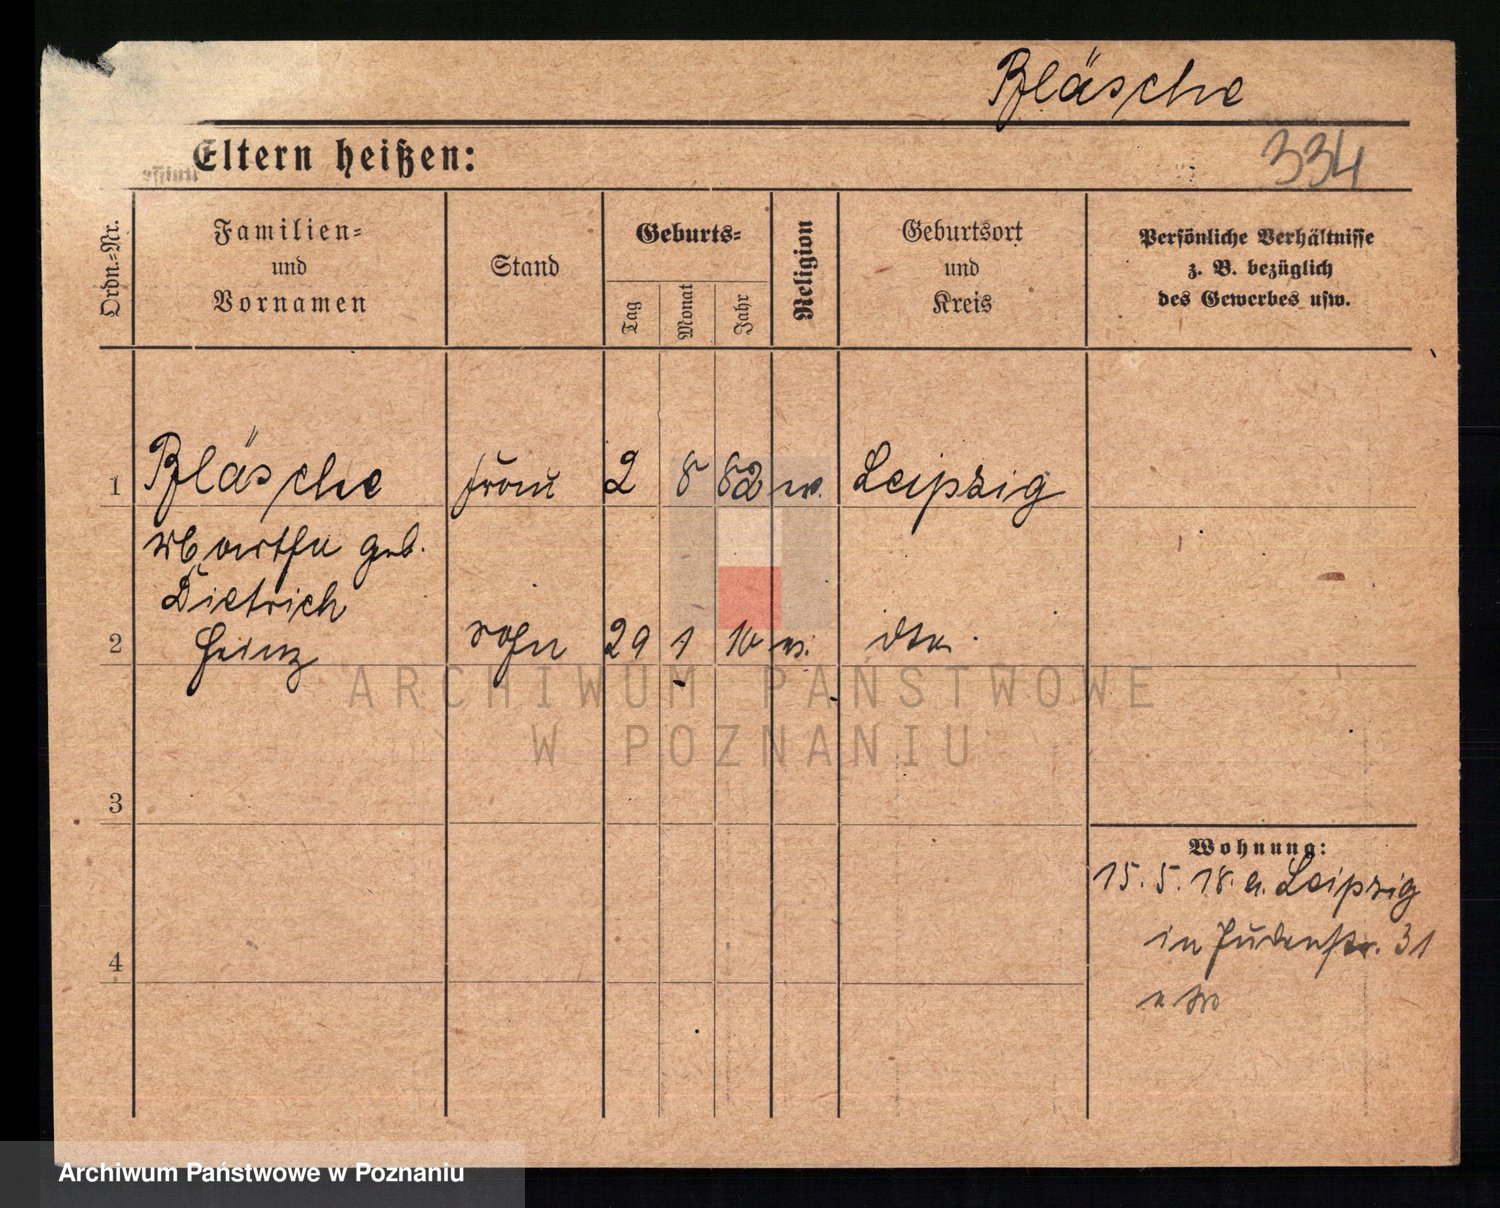 Bläsche
Eltern heißen:
334
Ordn.-Nr.
Familien-
und
Vornamen
Stand
Geburts-
Tag
Monat
Jahr
Religion
Geburtsort
und
Kreis
Persönliche Verhältnisse
z. B. bezüglich
des Gewerbes usw.
1 Bläsche Frau 2 8 82 Leipzig
Martha geb.
Dietrich
2 Heinz Sohn 29 1 10 dto.
3
4
Wohnung:
15. 5. 18. a. Leipzig
in Judenstr. 31
ARCHIWUM PAŃSTWOWE
W POZNANIU
Archiwum Państwowe w Poznaniu